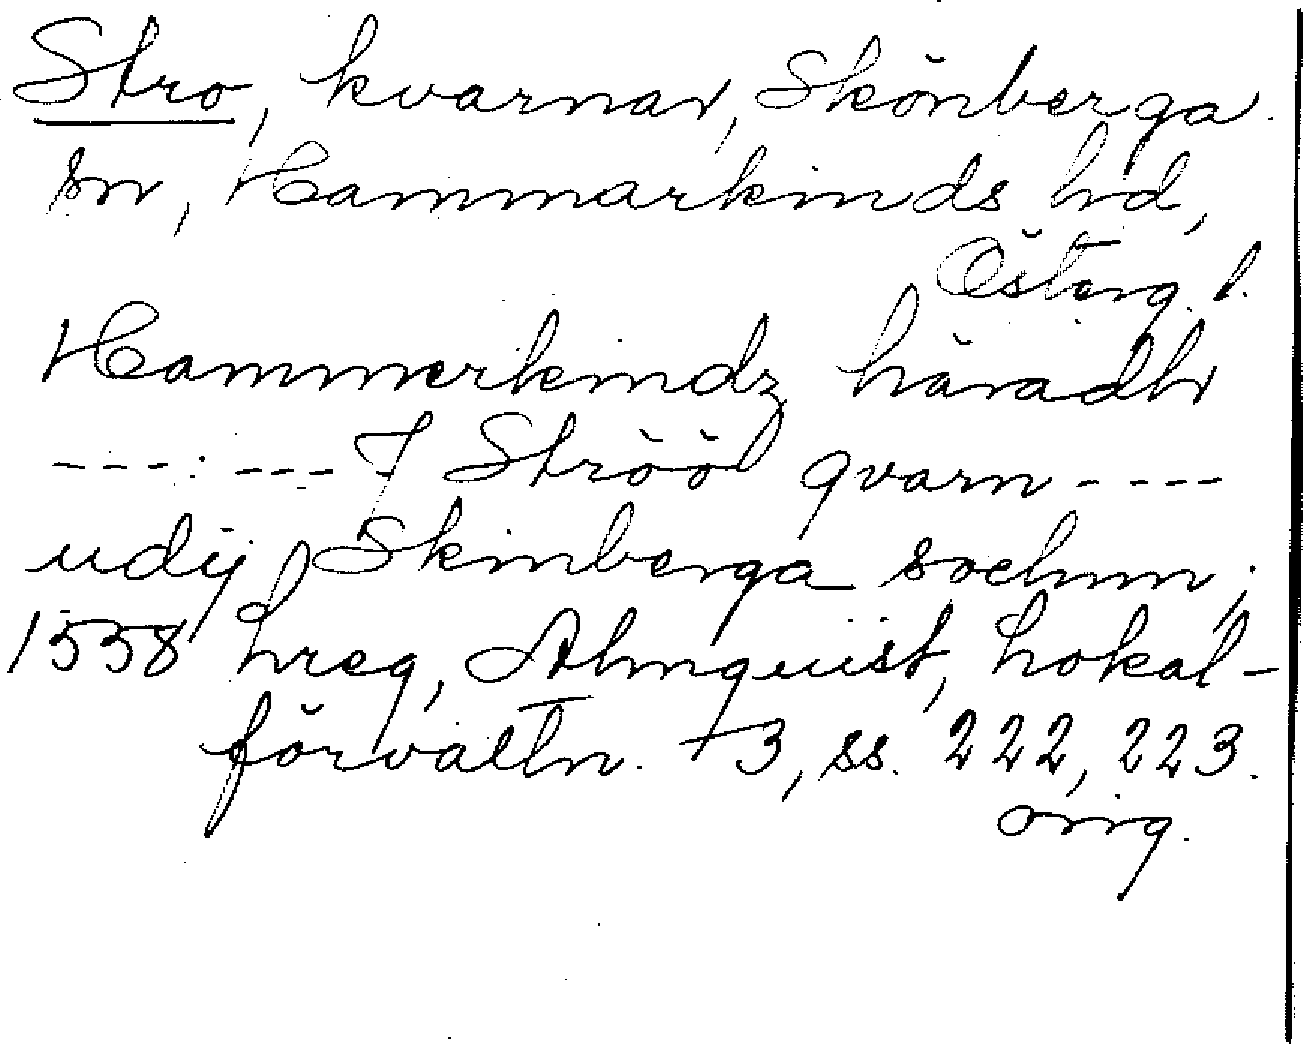 Stro, kvarnar, Skönberga
sn, Hammarkinds hd,
Österg. l.
Hammerkindz häradh
---:--- J Strööl qvarn ----
udij Skinberga sochnn;
1558 hreg, Almquist, Lokal-
förvaltn. +3, ss. 222, 223.
orig.